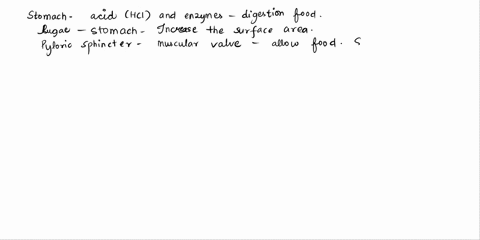 Stomach - acid (HCl) and enzymes - digestion food.
Rugae - stomach - Increase the surface area.
Pyloric sphincter - muscular valve - allow food. S